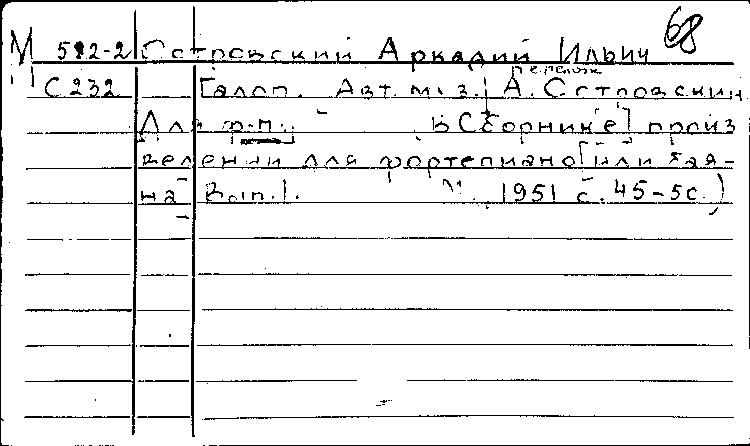 68
М 592-2 Островский Аркадий Ильич
перелож.
С 232 Галоп. Авт. муз. А. Островский
Для ф.п. [В Сборнике] произ
ведений для фортепиано [или бая-
на Вып. 1. М. 1951 с. 45-50.)